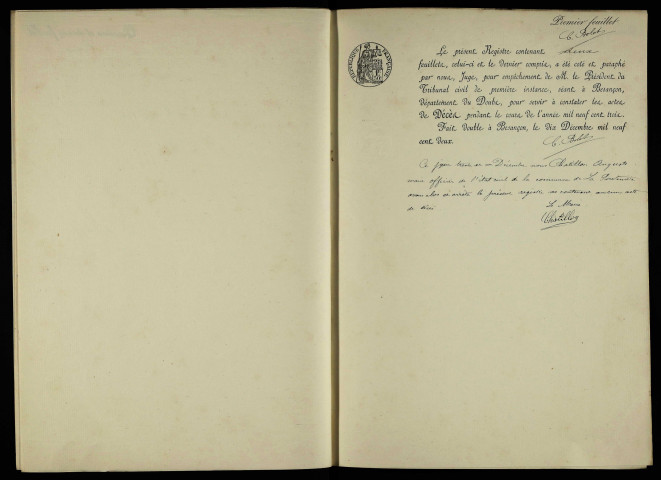 Premier feuillet
Le présent Registre contenant deux
feuillets, celui-ci et le dernier compris, a été coté et paraphé
par nous, Juge, pour empêchement de M. le Président du
Tribunal civil de première instance, séant à Besançon,
département du Doubs, pour servir à constater les actes
de Décès pendant le cours de l'année mil neuf cent trois.
Fait double à Besançon, le dix Décembre mil neuf
cent deux.
RÉPUBLIQUE FRANÇAISE
Ce jour trente et un Décembre nous Chatillon Auguste
maire officier de l'état civil de la commune de La
avons clos et arrêté le présent registre ne contenant aucun acte
de décès
Le Maire
Chatillon